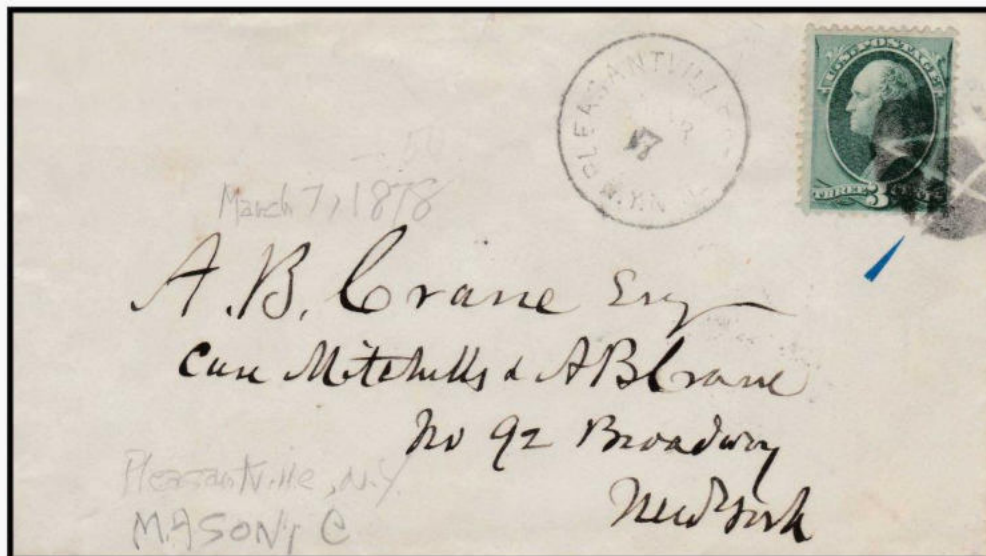 PLEASANTVILLE
N.Y.
7
U.S. POSTAGE
THREE 3
March 7, 1878
A.B. Crane Esq
Care Mitchells & AB Crane
No 92 Broadway
New York
Pleasantville, N.Y.
MASONIC